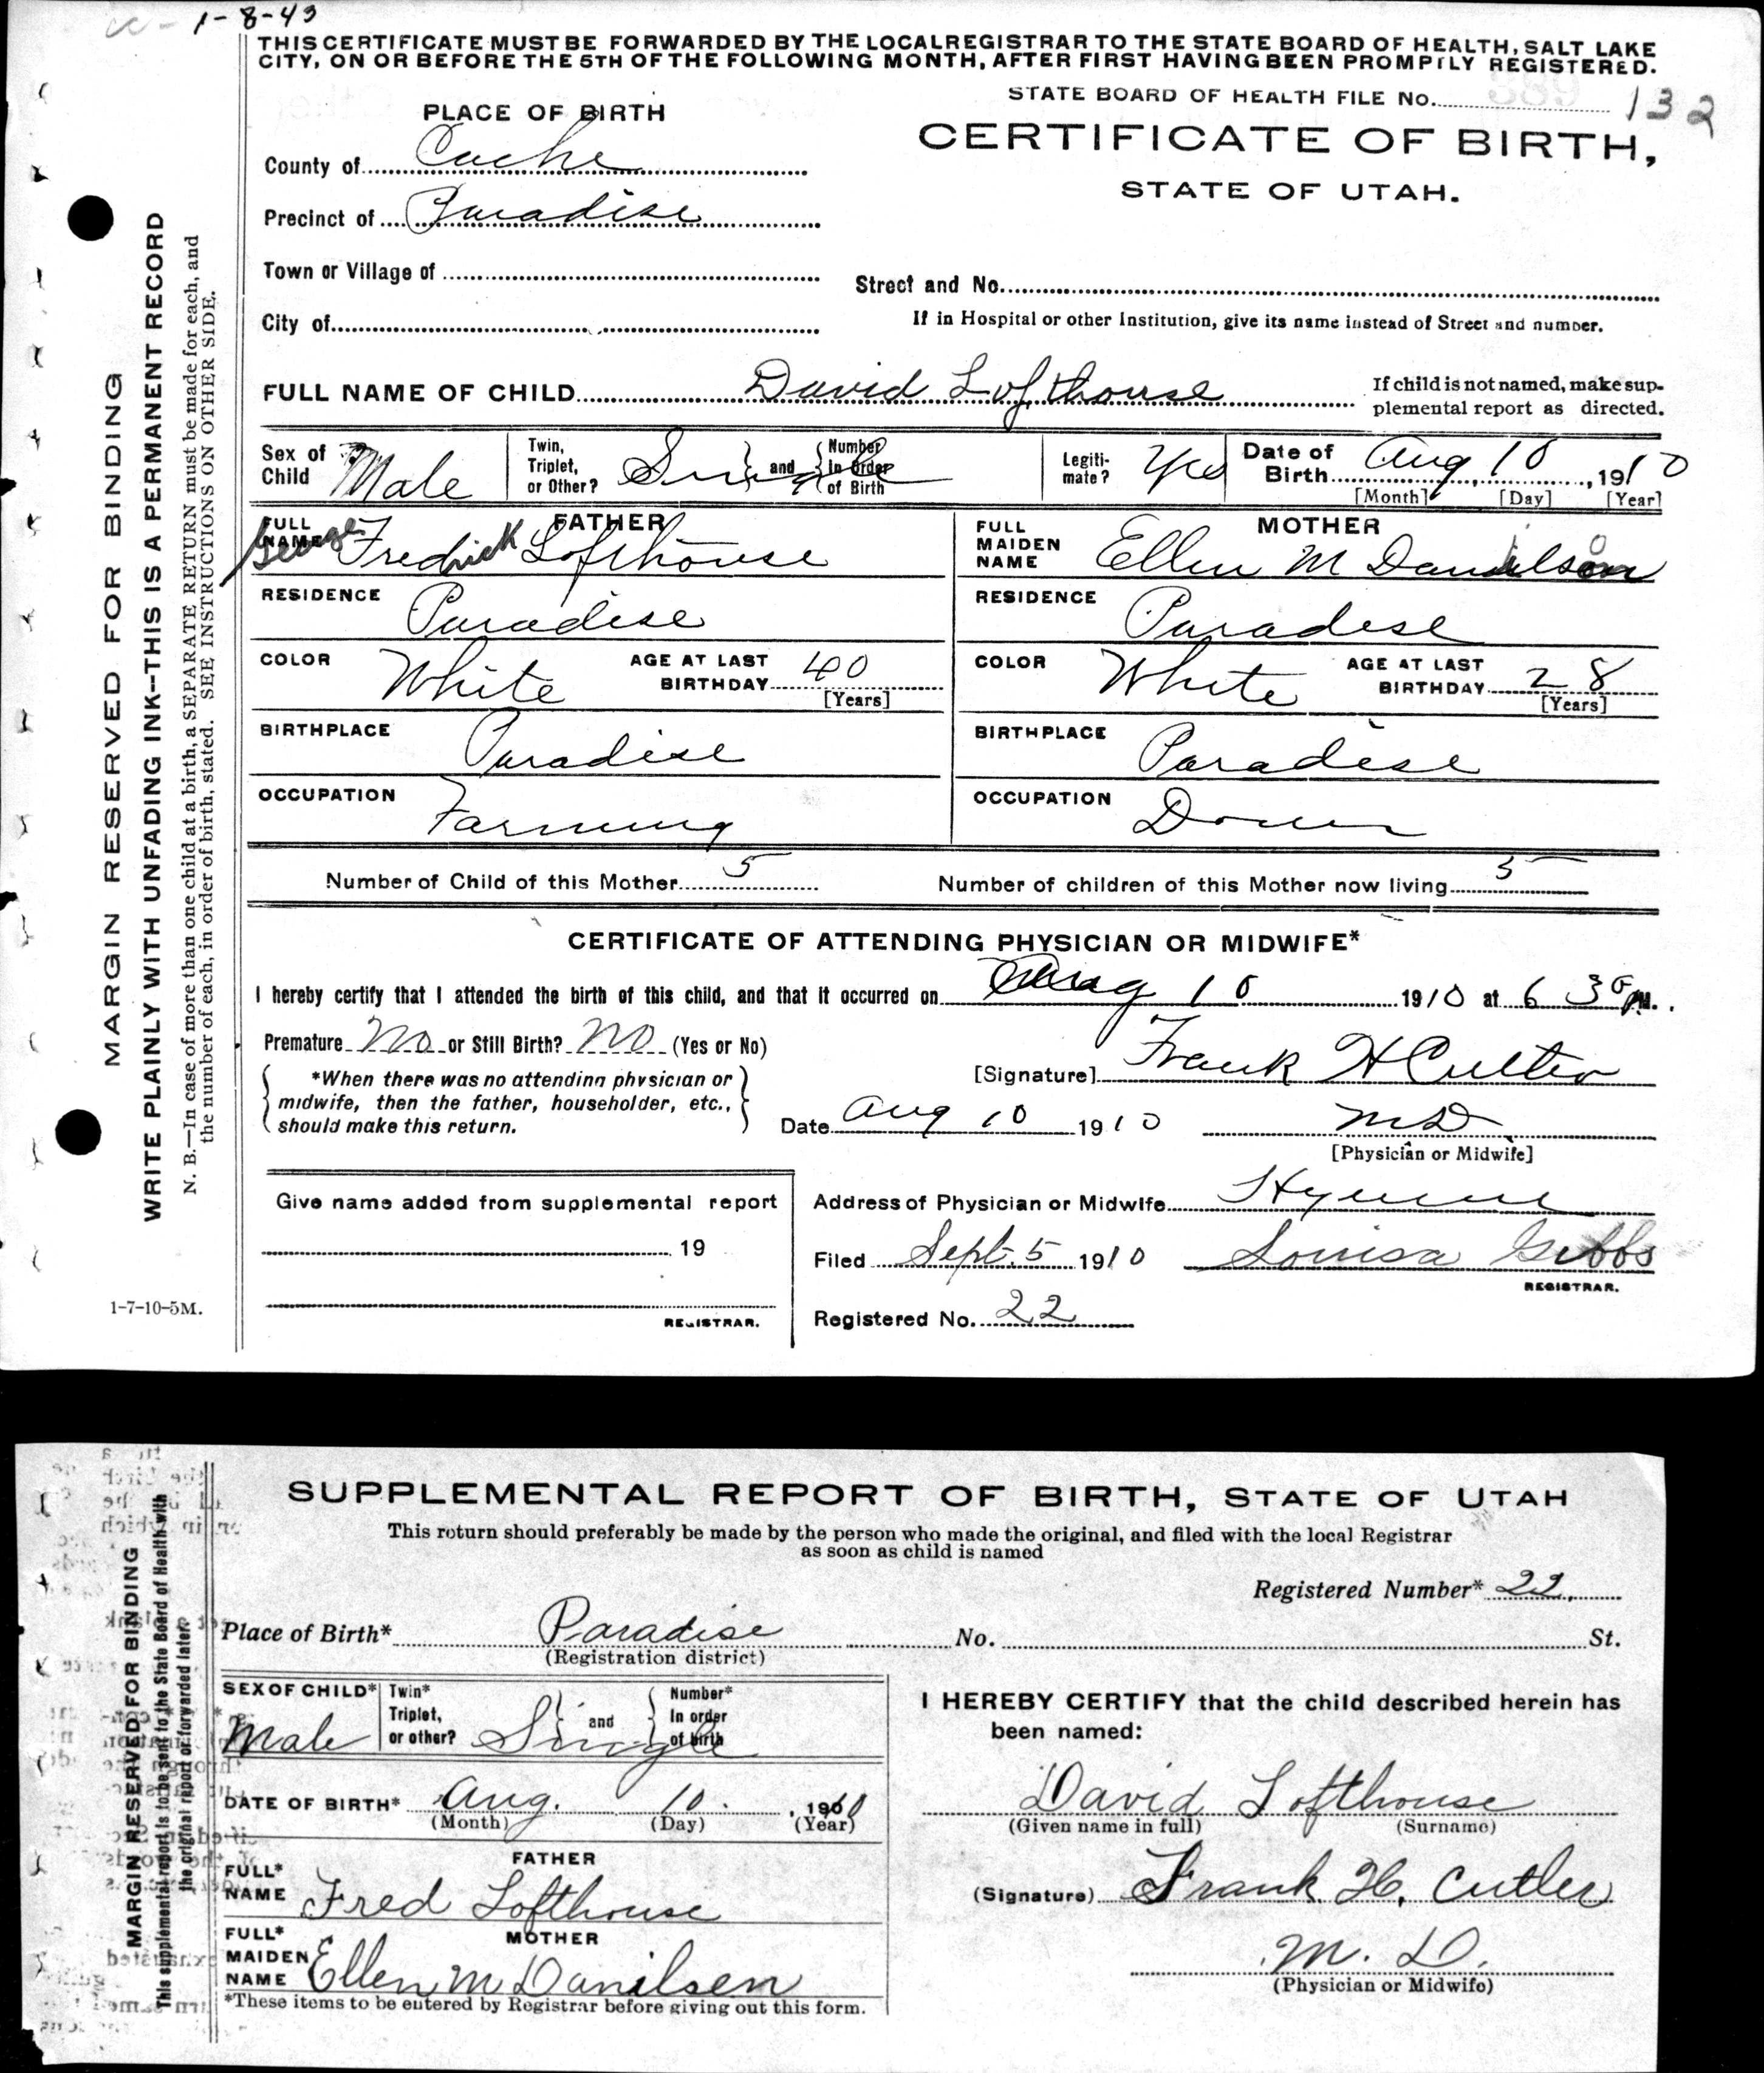 1-8-43
THIS CERTIFICATE MUST BE FORWARDED BY THE LOCAL REGISTRAR TO THE STATE BOARD OF HEALTH, SALT LAKE
CITY, ON OR BEFORE THE 5TH OF THE FOLLOWING MONTH, AFTER FIRST HAVING BEEN PROMPTLY REGISTERED.
STATE BOARD OF HEALTH FILE No. 132
CERTIFICATE OF BIRTH,
STATE OF UTAH.
PLACE OF BIRTH
County of Cache
Precinct of Paradise
Town or Village of
City of
Street and No.
If in Hospital or other Institution, give its name instead of Street and number.
FULL NAME OF CHILD David Lofthouse
If child is not named, make sup-
plemental report as directed.
Sex of Child Male
Twin, Triplet, or Other? Single and Number in Order of Birth
Legiti-mate? Yes
Date of Birth Aug 10, 1910
[Month] [Day] [Year]
FATHER
FULL NAME George Fredrick Lofthouse
RESIDENCE Paradise
COLOR White AGE AT LAST BIRTHDAY 40 [Years]
BIRTHPLACE Paradise
OCCUPATION Farming
MOTHER
FULL MAIDEN NAME Ellen M Danilson
RESIDENCE Paradise
COLOR White AGE AT LAST BIRTHDAY 28 [Years]
BIRTHPLACE Paradise
OCCUPATION
Number of Child of this Mother 5
Number of children of this Mother now living 5
CERTIFICATE OF ATTENDING PHYSICIAN OR MIDWIFE*
I hereby certify that I attended the birth of this child, and that it occurred on Aug 10 1910 at 6 30 P M.
Premature No or Still Birth? No (Yes or No)
*When there was no attending physician or
midwife, then the father, householder, etc.,
should make this return.
[Signature] Frank H Cutler
Date Aug 10 1910 MD
[Physician or Midwife]
Give name added from supplemental report
19
REGISTRAR.
Address of Physician or Midwife Hyrum
Filed Sept. 5 1910 Louisa Gibbs
REGISTRAR.
Registered No. 22
MARGIN RESERVED FOR BINDING
WRITE PLAINLY WITH UNFADING INK--THIS IS A PERMANENT RECORD
N. B.—In case of more than one child at a birth, a SEPARATE RETURN must be made for each, and
the number of each, in order of birth, stated. SEE INSTRUCTIONS ON OTHER SIDE.
1-7-10-5M.
SUPPLEMENTAL REPORT OF BIRTH, STATE OF UTAH
This return should preferably be made by the person who made the original, and filed with the local Registrar
as soon as child is named
Registered Number* 22
Place of Birth* Paradise No. St.
(Registration district)
SEX OF CHILD* Male
Twin* Triplet, or other? Single and Number* In order of birth
DATE OF BIRTH* Aug. 10. 1910
(Month) (Day) (Year)
FATHER
FULL* NAME Fred Lofthouse
MOTHER
FULL* MAIDEN NAME Ellen M Danilsen
*These items to be entered by Registrar before giving out this form.
I HEREBY CERTIFY that the child described herein has
been named:
David Lofthouse
(Given name in full) (Surname)
(Signature) Frank H. Cutler
M. D.
(Physician or Midwife)
MARGIN RESERVED FOR BINDING
This supplemental report is to be sent to the State Board of Health with
the original report or forwarded later.